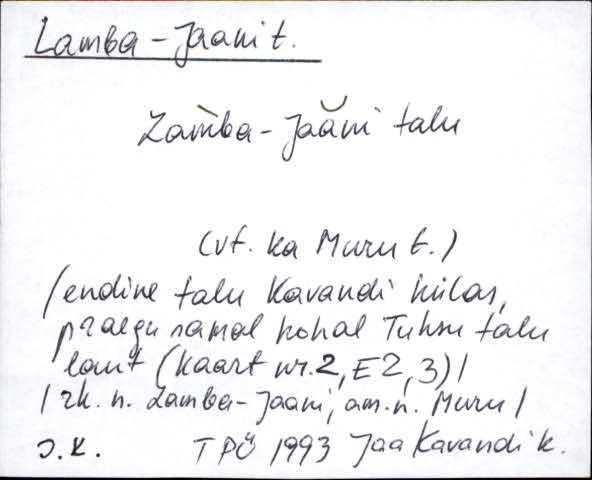 Lamba-Jaani t.
Lam̀ba-Jăăni talu
(vt. ka Muru t.)
/endine talu Kavandi külas,
praegu samal kohal Tuhsu talu
laut (kaart nr. 2, E2,3)/
/rk. n. Lamba-Jaani, am. n. Muru/
J.K. TPÜ 1993 Jaa Kavandi k.